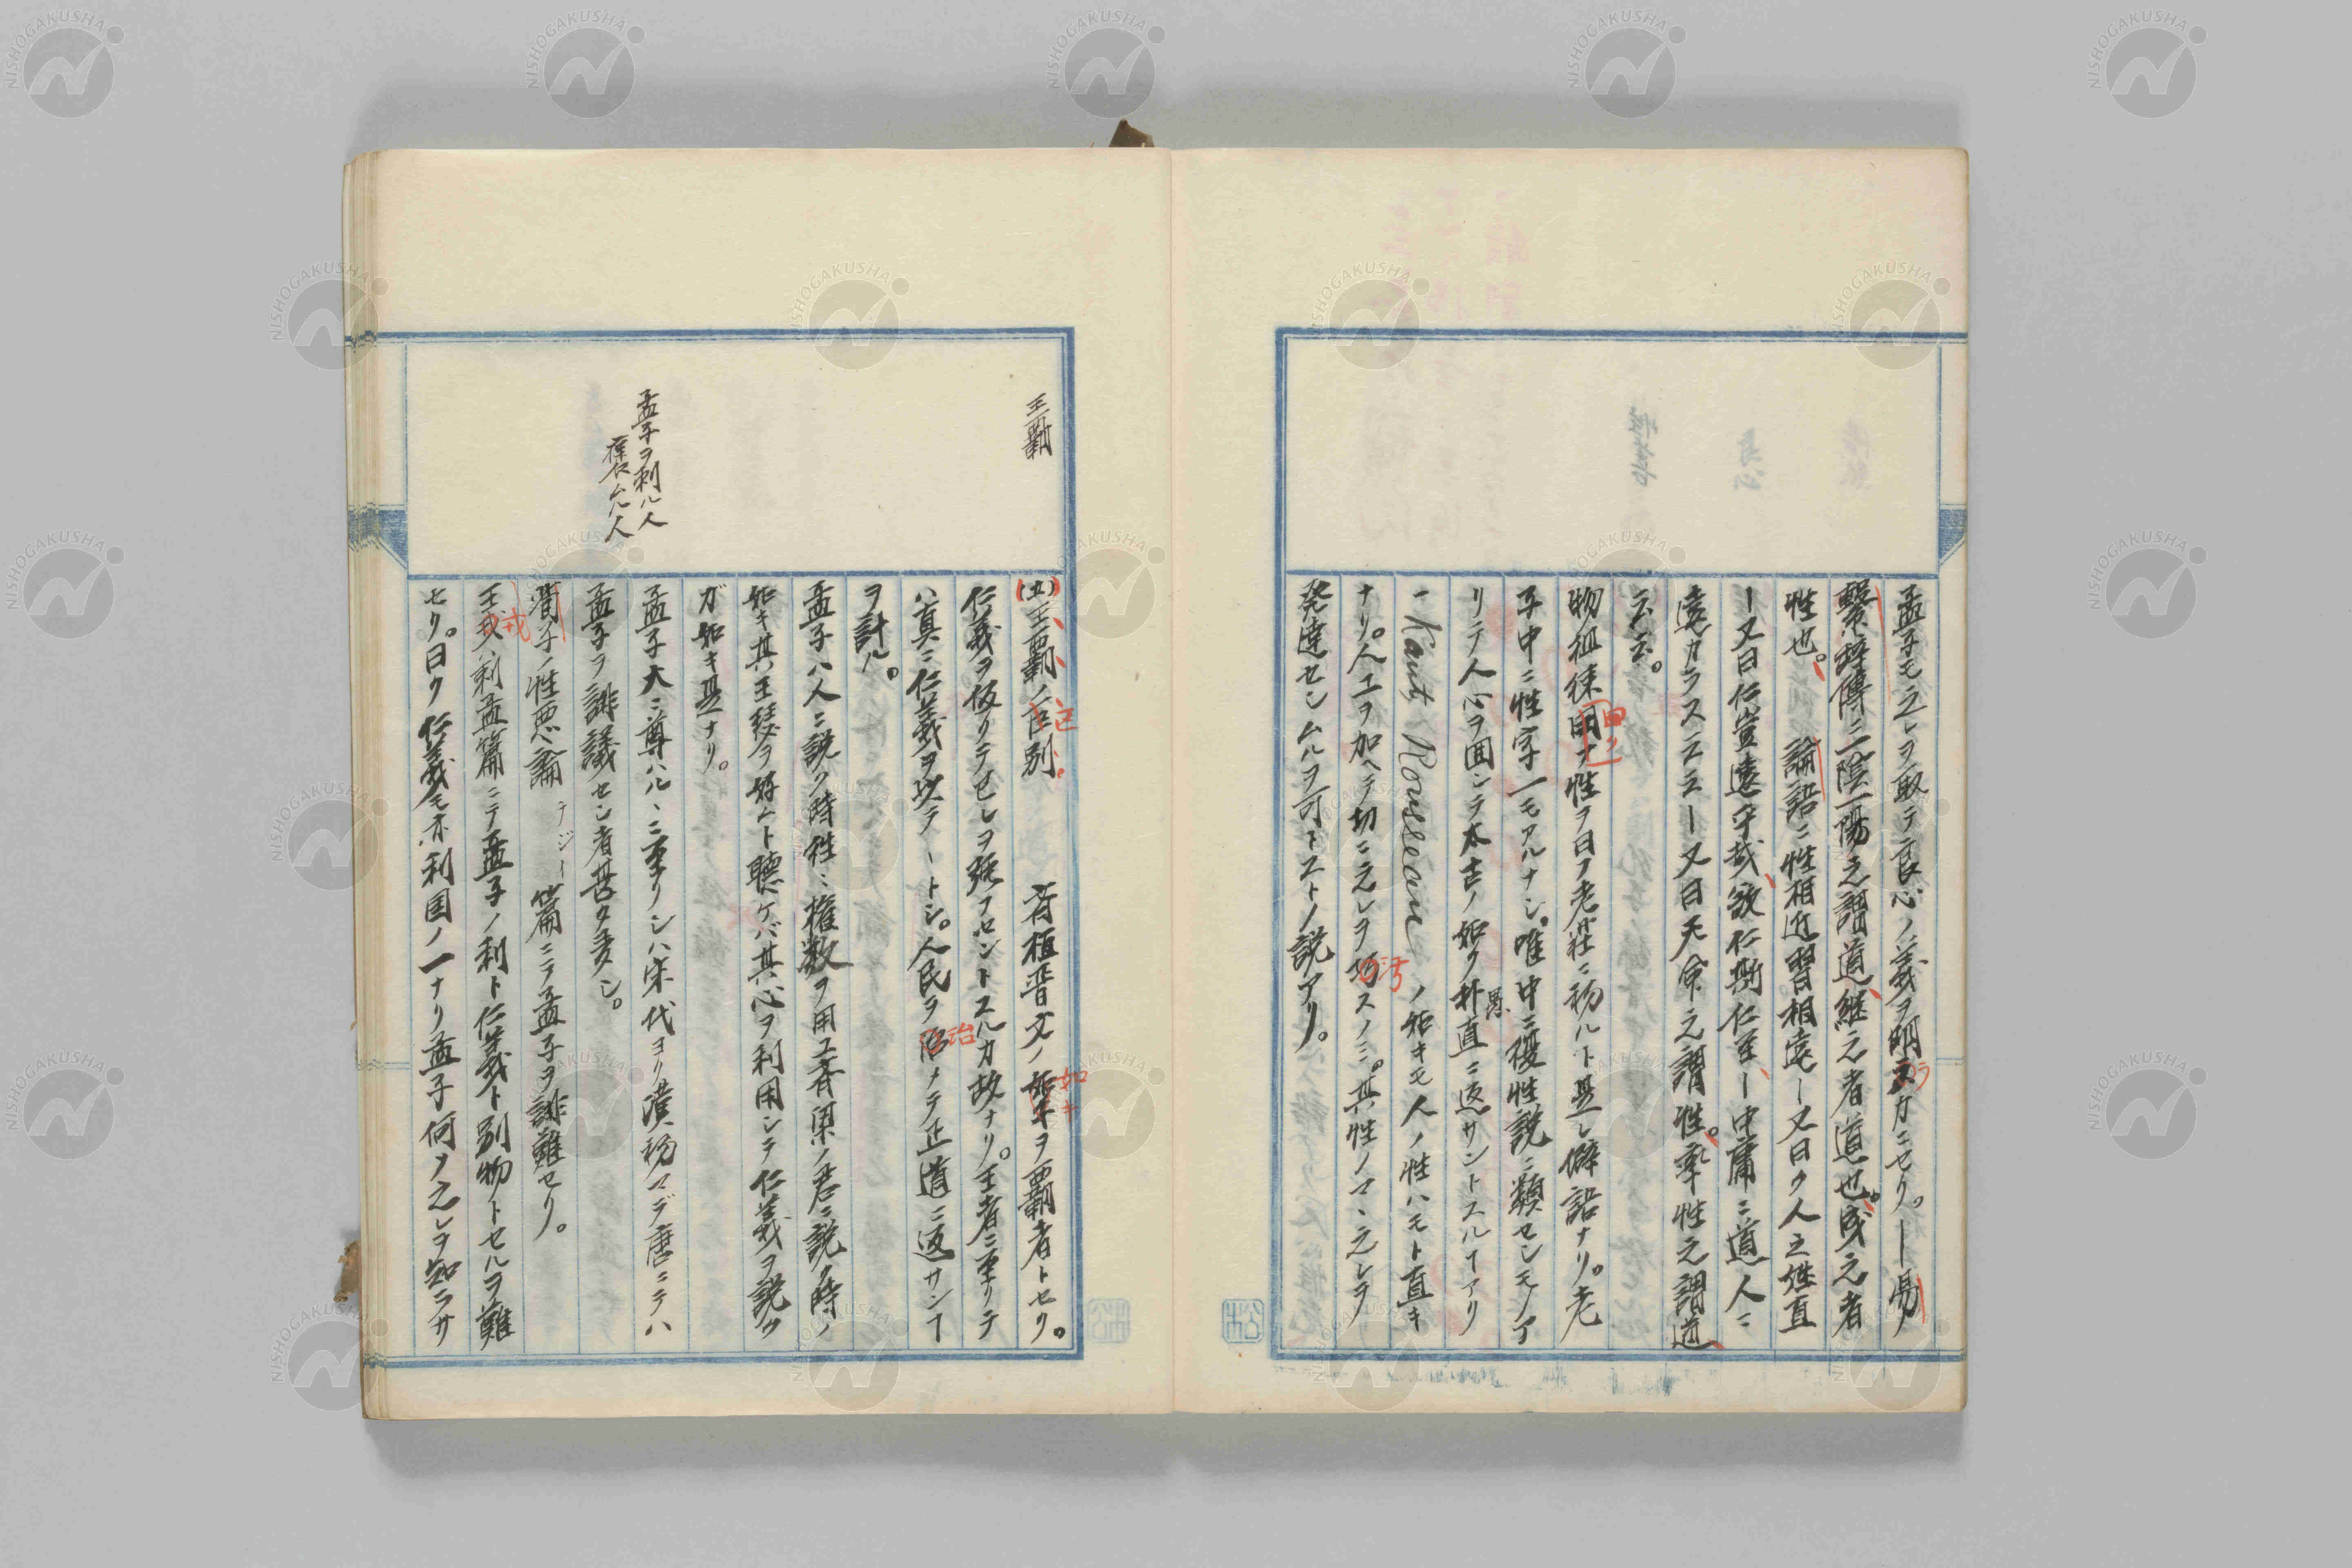 孟子モ之レヲ取テ良心ノ義ヲ明カニセリ。ー易ノ
繋辞傳ニ一陰一陽之謂道、継之者道也。成之者
性也。論語ニ性相近習相遠ー又曰ク人之性直
ー又曰仁豈遠乎哉、欲仁斯仁至、ー中庸ニ道人ニ
遠カラス云云ー又曰天命之謂性。率性之謂道
云云。
物徂徠曰ク性ヲ曰フ老荘ニ初ルト是レ僻説ナリ。老
子中ニ性字一モアルナシ。唯中ニ復性説ニ類センモノア
リテ人心ヲ回シテ太古ノ如ク朴直ニ返サントスルヿアリ
愚
ー Kant, Rousseau ノ如キモ人ノ性ハモト直キ
ナリ。人工ヲ加ヘテ切ニ之レヲ汚スノミ。其性ノマヽ之レヲ
発達センムルヲ可トストノ説アリ。
王霸
(五)王霸ノ区別。 斉桓晋文ノ如キヲ霸者トセリ。
仁義ヲ仮リテ己レヲ強フセントスルカ故ナリ。王者ニ至リテ
ハ真ニ仁義ヲ以テートシ。人民ヲ治メテ正道ニ返サンヿ
ヲ計ル。
孟子ハ人ニ説ク時往々権数ヲ用ユ斉梁ノ君ニ説ク時ノ
如キ其王琴ヲ好ムト聴ケバ其心ヲ利用シテ仁義ヲ説ク
ガ如キ是ナリ。
孟子ヲ刺ル人
褒ムル人
孟子大ニ尊ハルヽニ至リシハ宋代ヨリ漢初マデ唐ニテハ
孟子ヲ誹議セン者甚タ多シ。
荀子ノ性悪論 テジー篇ニテ孟子ヲ誹難セリ。
王充ハ刺孟篇ニテ孟子ノ利ト仁義ト別物トセルヲ難
セリ。曰ク仁義モ亦利国ノ一ナリ孟子何ソ之レヲ知ラサ
NISHOGAKUSHA